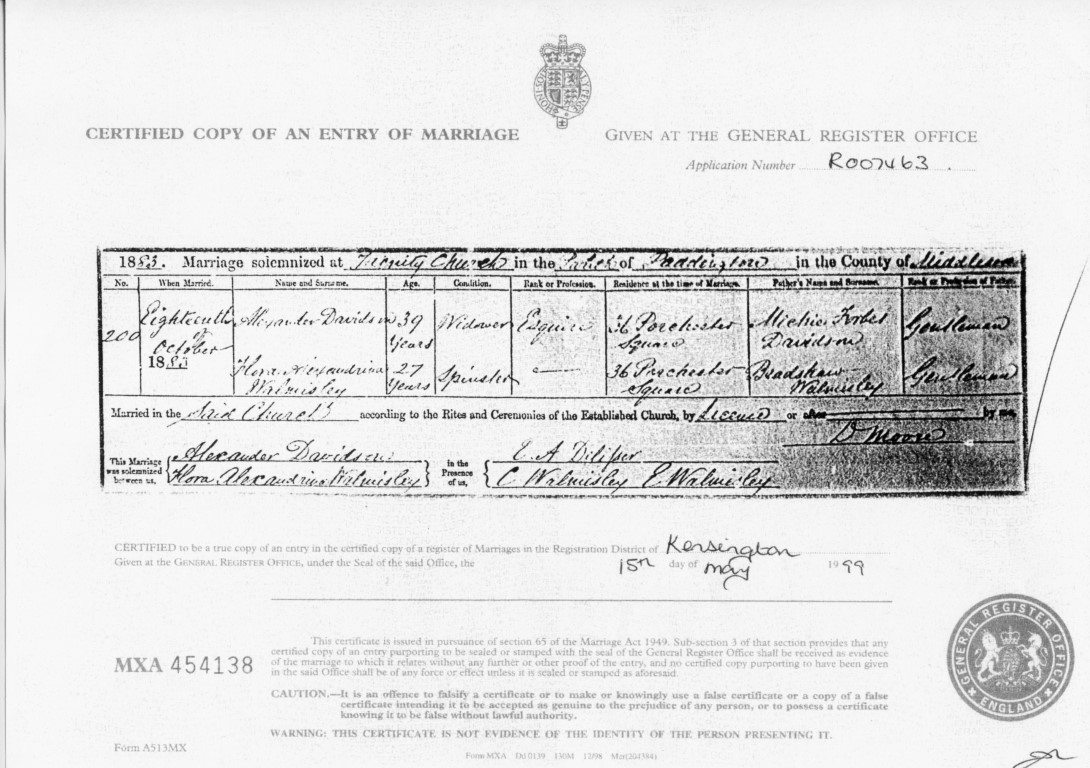 CERTIFIED COPY OF AN ENTRY OF MARRIAGE
GIVEN AT THE GENERAL REGISTER OFFICE
Application Number R007463
1883. Marriage solemnized at Trinity Church in the Parish of Paddington in the County of Middlesex
No. When Married. Name and Surname. Age. Condition. Rank or Profession. Residence at the time of Marriage. Father's Name and Surname. Rank or Profession of Father.
200 Eighteenth of October 1883 Alexander Davidson 39 Years Widower Esquire 36 Porchester Square Michie Forbes Davidson Gentleman
Flora Alexandrina Walmisley 27 Years Spinster 36 Porchester Square Bradshaw Walmisley Gentleman
Married in the Said Church according to the Rites and Ceremonies of the Established Church, by Licence or after by me,
D. Moore
This Marriage was solemnized between us, Alexander Davidson
Flora Alexandrina Walmisley
in the Presence of us, E A
C Walmisley E Walmisley
CERTIFIED to be a true copy of an entry in the certified copy of a register of Marriages in the Registration District of Kensington
Given at the GENERAL REGISTER OFFICE, under the Seal of the said Office, the 15th day of May 1999
This certificate is issued in pursuance of section 65 of the Marriage Act 1949. Sub-section 3 of that section provides that any
certified copy of an entry purporting to be sealed or stamped with the seal of the General Register Office shall be received as evidence
of the marriage to which it relates without any further or other proof of the entry, and no certified copy purporting to have been given
in the said Office shall be of any force or effect unless it is sealed or stamped as aforesaid.
MXA 454138
CAUTION.—It is an offence to falsify a certificate or to make or knowingly use a false certificate or a copy of a false
certificate intending it to be accepted as genuine to the prejudice of any person, or to possess a certificate
knowing it to be false without lawful authority.
WARNING: THIS CERTIFICATE IS NOT EVIDENCE OF THE IDENTITY OF THE PERSON PRESENTING IT.
GENERAL REGISTER OFFICE
ENGLAND
Form A513MX
Form MXA Dd 0139 130M 12/98 Mcr(204384)